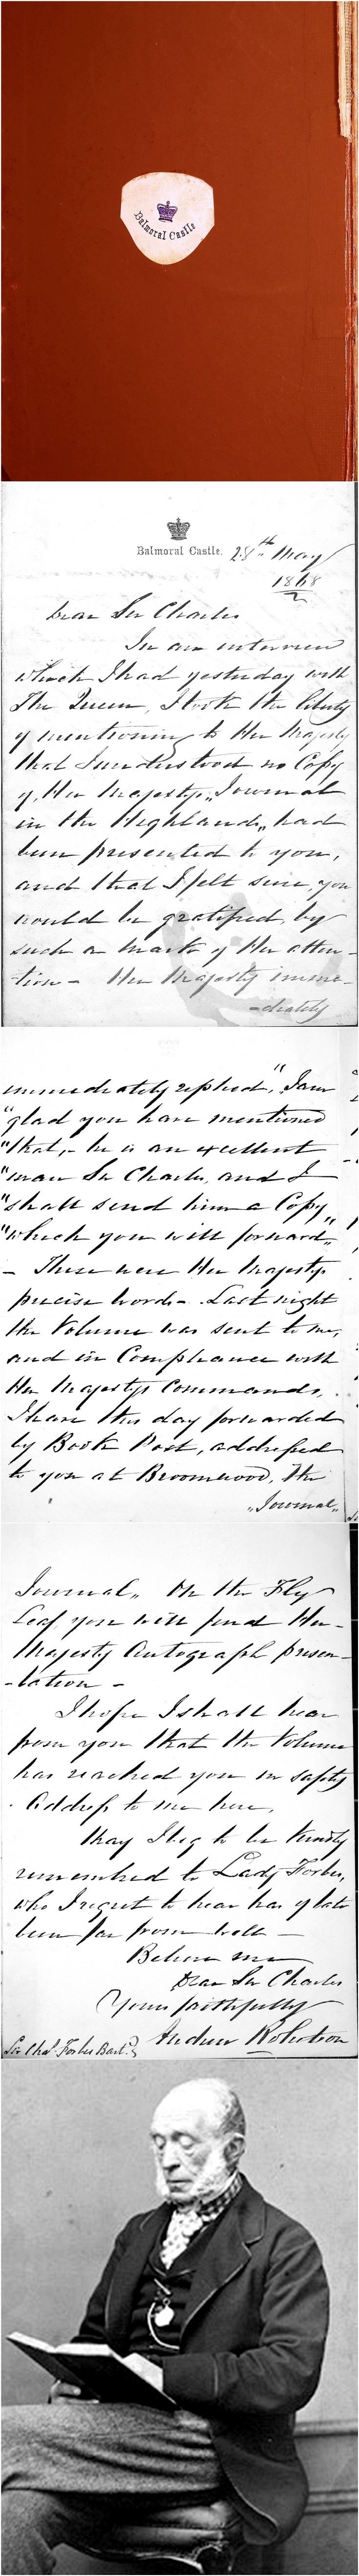 Balmoral Castle
Balmoral Castle. 28th May
1868
Dear Sir Charles
In an interview
which I had yesterday with
The Queen, I took the liberty
of mentioning to Her Majesty
that I understood no Copy
of Her Majesty's „Journal
in the Highlands„ had
been presented to you,
and that I felt sure, you
would be gratified by
such a mark of Her atten-
-tion - Her Majesty imme-
-diately
immediately replied, "I am
"glad you have mentioned
"that, - he is an excellent
"man Sir Charles, and I
"shall send him a Copy
"which you will forward„
- These were Her Majesty's
precise words - Last night
the Volume was sent to me,
and in Compliance with
Her Majesty's Commands,
I have this day forwarded
by Book Post, addressed
to you at Broomwood, The
„Journal„
Journal„ On the Fly
Leaf you will find Her
Majesty Autograph presen-
-tation -
I hope I shall hear
from you that the Volume
has reached you in safety
. Address to me here.
May I beg to be kindly
remembred to Lady Forbes,
who I regret to hear has of late
been far from well -
Believe me
Dear Sir Charles
Yours faithfully
Andrew Robertson
Sir Chas. Forbes Bart.